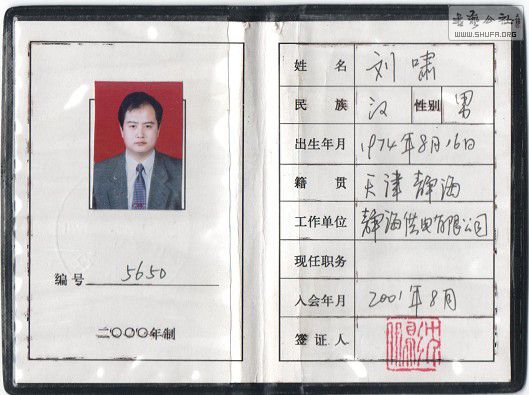 书法公社
WWW.SHUFA.ORG
编号 5650
二〇〇〇年制
姓名 刘啸
民族 汉 性别 男
出生年月 1974年8月16日
籍贯 天津静海
工作单位 静海供电有限公司
现任职务
入会年月 2001年8月
签证人